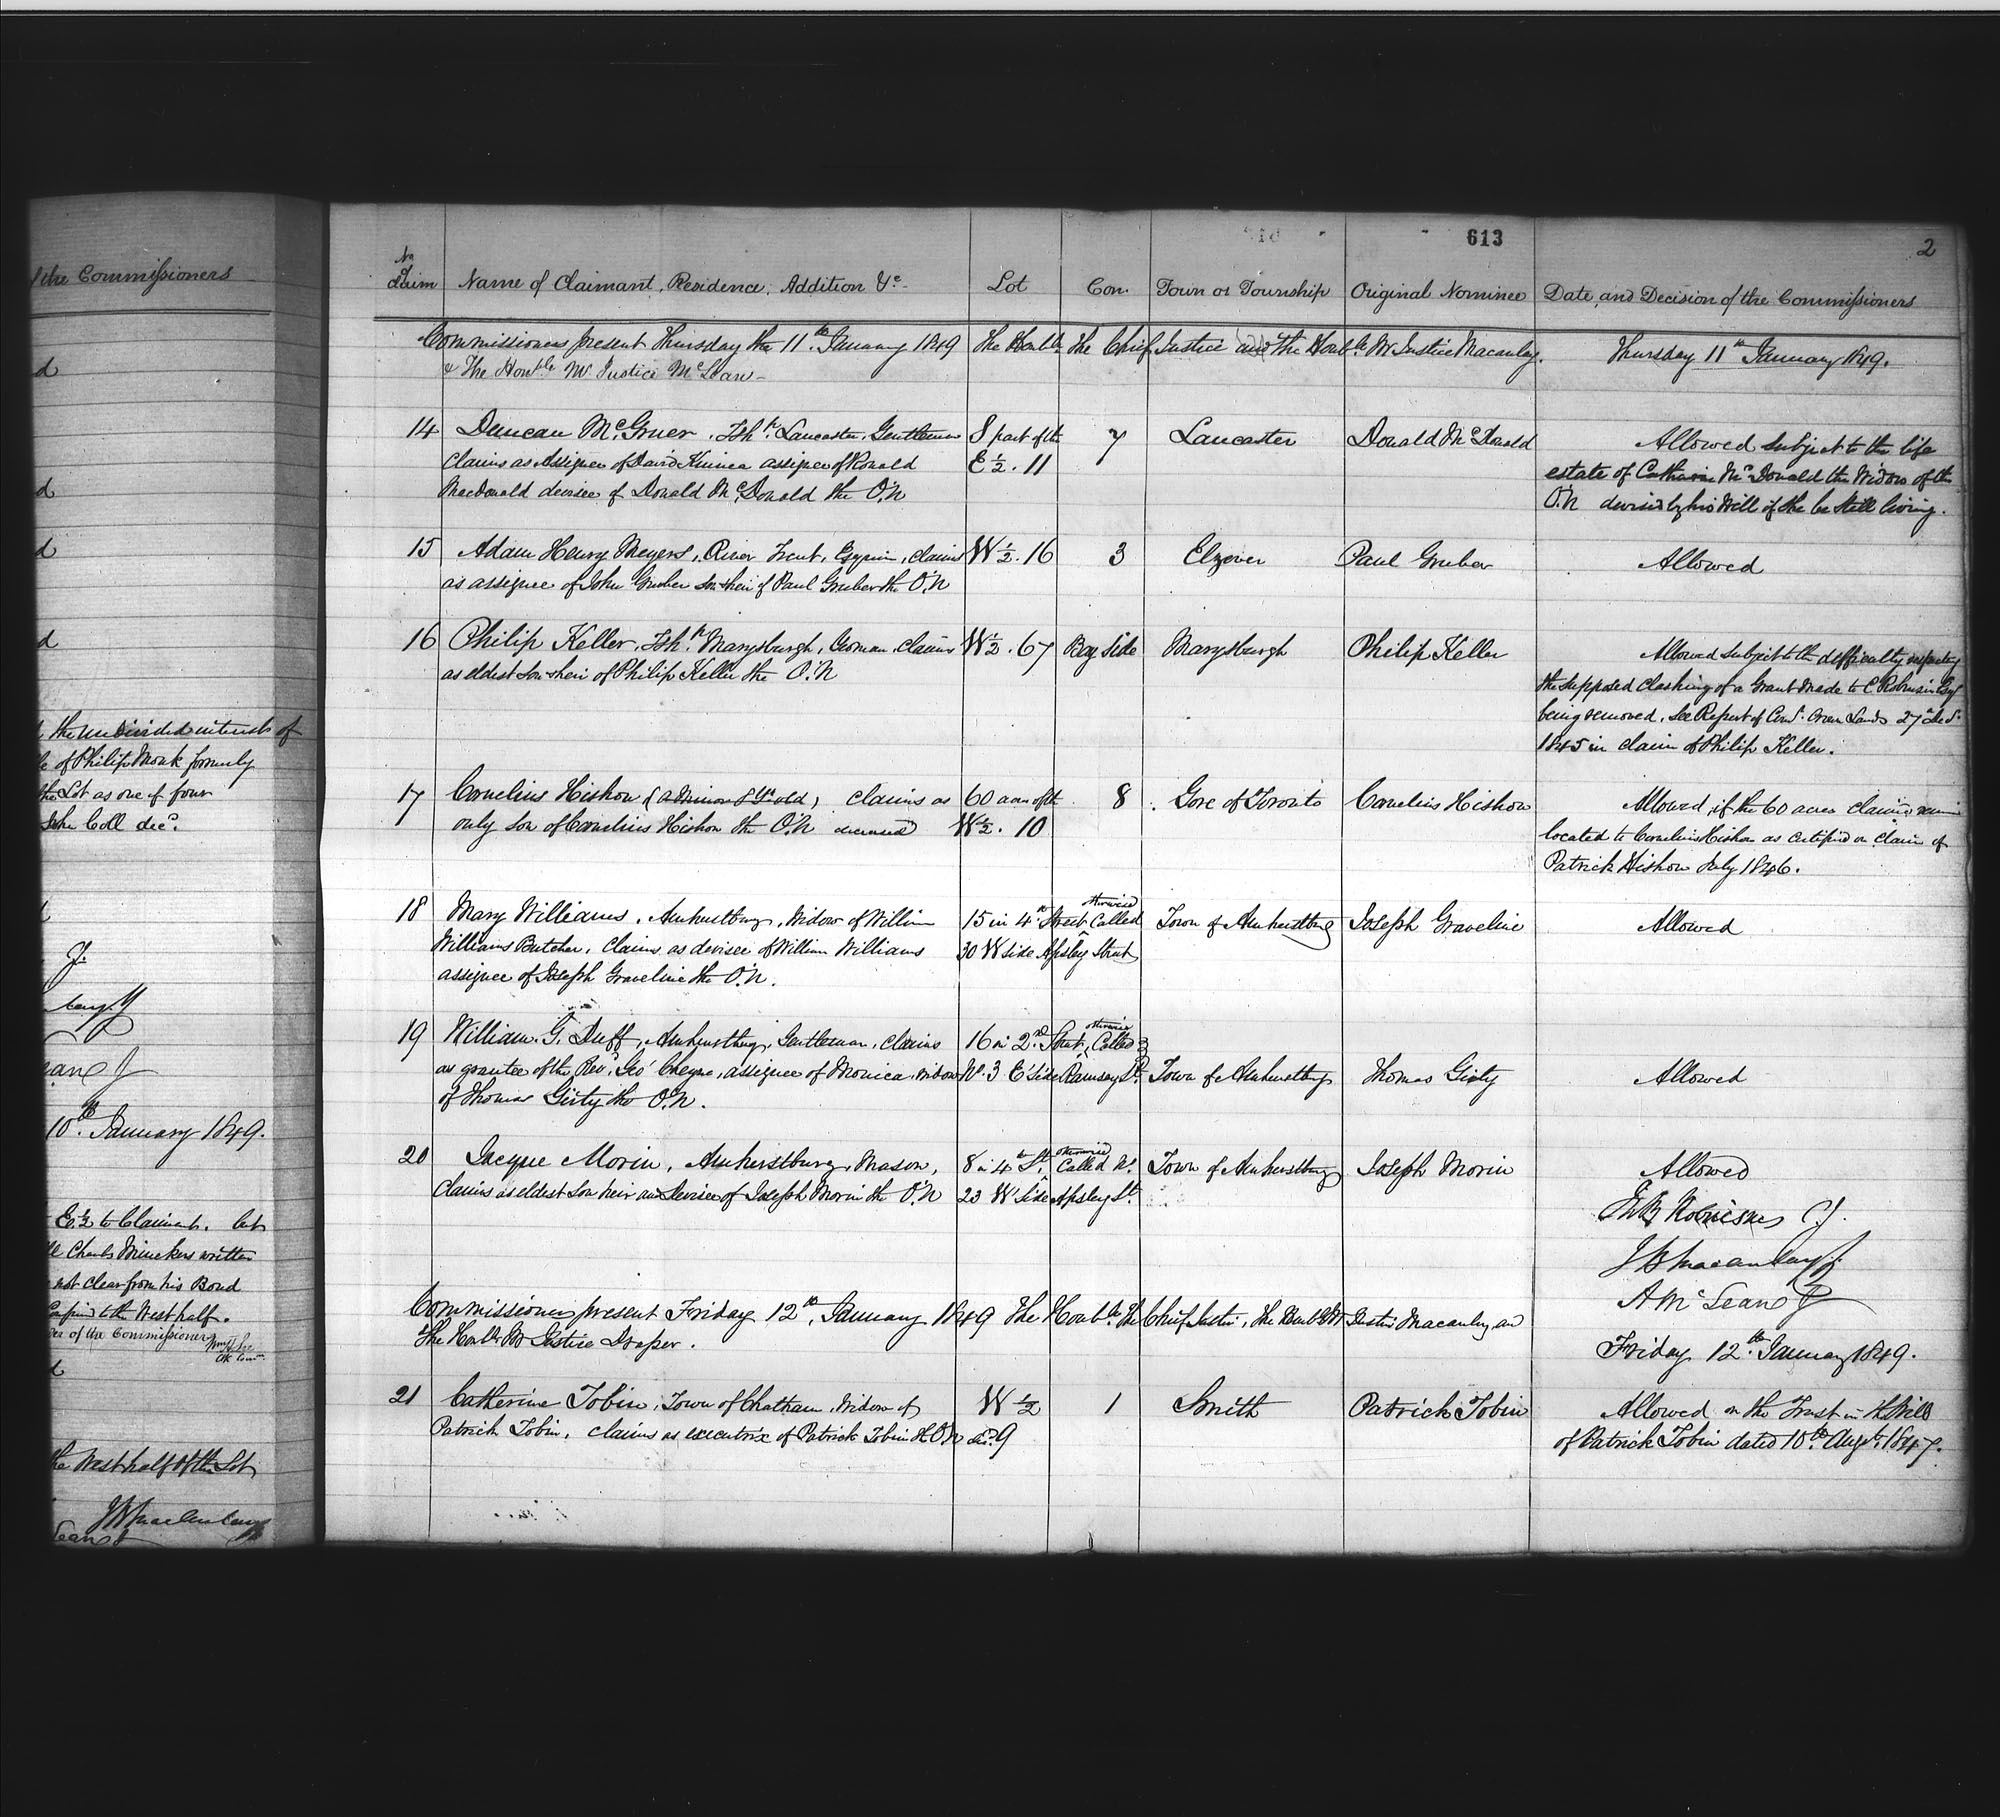 the Commissioners
d
d
d
d
the undivided interests of
of Philip Monk formerly
the Lot as one of four
John Coll decd.
J.
10th January 1849.
E½ to Claimant. but
Charles written
not clear from his Bond
to the West half.
of the Commissioners
the West half of the Lot
JB Macaulay
613
2
No Claim
Name of Claimant, Residence, Addition &c
Lot
Con.
Town or Township
Original Nominee
Date, and Decision of the Commissioners
Commissioners present Thursday the 11th January 1849 The Honble. The Chief Justice and the Honble Mr Justice Macaulay.
& The Honble Mr Justice McLean
Thursday 11th January 1849.
14
Duncan McGruer, Tshp. Lancaster, Gentleman
claims as Assignee of David Kinnea assignee of Ronald
Macdonald devisee of Donald McDonald the O.N
S part of the
E½. 11
7
Lancaster
Donald McDonald
Allowed subject to the life
estate of Catharine McDonald the Widow of the
O.N devised by his Will if she be still living.
15
Adam Henry Meyers, River Trent, Esquire, claims
as assignee of John Gruber son & heir of Paul Gruber the O.N
W½. 16
3
Elzever
Paul Gruber
Allowed
16
Philip Keller, Tshp. Marysburgh, Yeoman, claims
as eldest son & heir of Philip Keller the O.N
W½. 67
Bay Side
Marysburgh
Philip Keller
Allowed subject to the difficulty respecting
the supposed clashing of a Grant made to C Robinson Esqr
being removed. See Report of Comr. Crown Lands 27th Decr.
1845 in claim of Philip Keller.
17
Cornelius Hishon (a Minor 8 yrs old) claims as
only son of Cornelius Hishon the O.N deceased
60 acres of the
W½. 10
8
Gore of Toronto
Cornelius Hishon
Allowed, if the 60 acres claimed remain
located to Cornelius Hishon as certified on claim of
Patrick Hishon July 1846.
18
Mary Williams, Amherstburg, Widow of William
Williams Butcher, claims as devisee of William Williams
assignee of Joseph Graveline the O.N.
15 in 4th Street otherwise Called
30 W side Apsley Street
Town of Amherstburg
Joseph Graveline
Allowed
19
William G. Duff, Amherstburg, Gentleman, claims
as grantee of the Revd. Geo Cheyne, assignee of Monica, widow
of Thomas Girty the O.N.
16 in 2nd Street, otherwise Called
No. 3 E Side Ramsay St.
Town of Amherstburg
Thomas Girty
Allowed
20
Jacque Morin, Amherstburg, Mason,
claims as eldest son heir and Devisee of Joseph Morin the O.N
8 in 4th St. otherwise Called No.
23 W Side Apsley St.
Town of Amherstburg
Joseph Morin
Allowed
JnB Robinson CJ.
JB Macaulay J.
A McLean J
Commissioners present Friday 12th January 1849 The Honble. The Chief Justice, the Honble Mr Justice Macaulay and
The Honble Mr Justice Draper.
Friday 12th January 1849.
21
Catherine Tobin, Town of Chatham, Widow of
Patrick Tobin, claims as executrix of Patrick Tobin the O.N decd.
W½
9
1
Smith
Patrick Tobin
Allowed on the Trust in the Will
of Patrick Tobin dated 10th Augt. 1847.